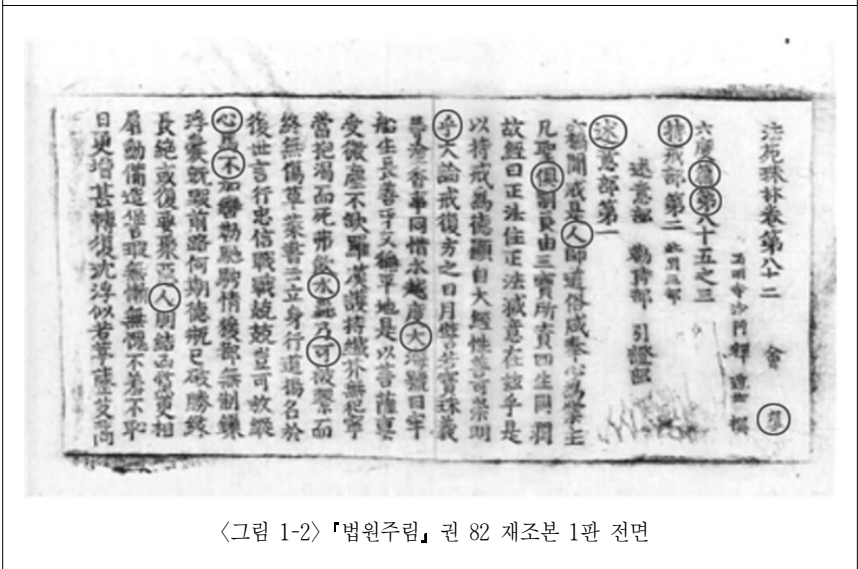 法苑珠林卷第八十二
西明寺沙門釋 道世 撰
六度篇第八十五之三
持戒部第二 此別三部
述意部 勸持部 引證部
述意部第一
竊聞戒是人師道俗咸奉心爲業主
凡聖俱制良由三寶所資四生同潤
故經曰正法住正法滅意在玆乎是
以持戒爲德顯自大經性善可崇明
乎大論戒復方之日月譬若寶珠義
等塗香事同惜水越度大海號曰牢
船生長善牙又稱平地是以菩薩稟
受微塵不缺羅漢護持纖芥無犯寧
當抱渴而死弗飮水蟲乃可被繫而
終無傷草葉書云立身行道揚名於
後世言行忠信戰戰兢兢豈可放縱
心馬不加轡勒馳騁情猴都無制鎖
浮囊旣毁前路何期德甁已破勝緣
長絶或復要聚惡人朋結凶黨更相
扇動備造諐瑕無慚無愧不羞不恥
日更增甚轉復沈浮似若葶藶艾蒿
〈그림 1-2〉『법원주림』 권 82 재조본 1판 전면